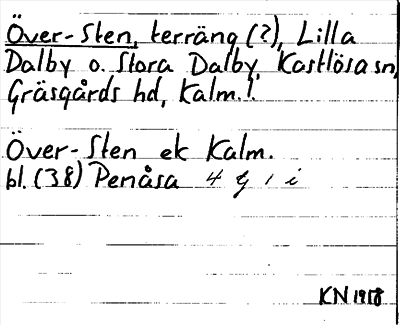 Över-Sten, terräng (?), Lilla
Dalby o. Stora Dalby, Kastlösa sn,
Gräsgårds hd, Kalm. l.
Över-Sten ek Kalm.
bl. (38) Penåsa 4 g 1 i
KN 1958